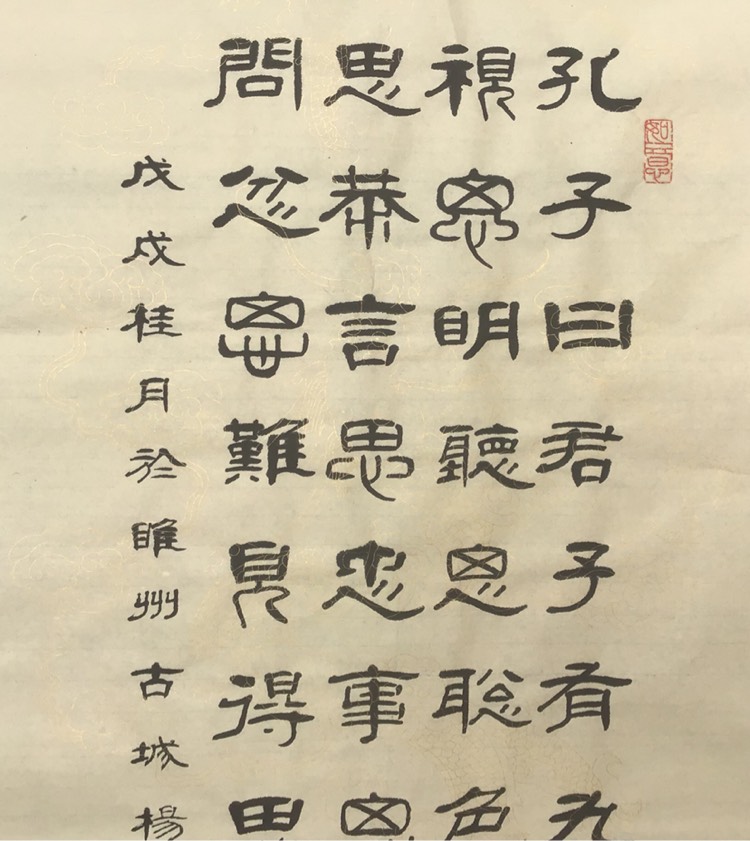 如意
孔子曰君子有九
視思明聽思聡色
思恭言思忠事思
問忿思難見得思
戊戌桂月於睢州古城楊